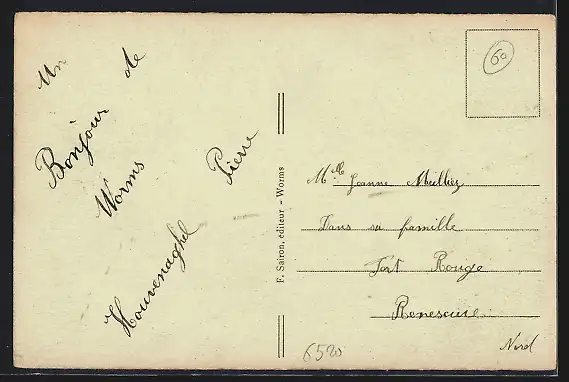 Un
Bonjour de
Worms
Pierre
Houvenaghel
F. Sairon, editeur - Worms
60
Mlle Jeanne Meilliez
Dans sa famille
Fort Rouge
Renescure
Nord
6520